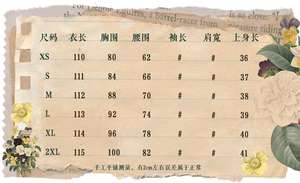 尺码 衣长 胸围 腰围 袖长 肩宽 上身长
XS 110 80 62 # # 36
S 111 84 66 # # 37
M 112 88 70 # # 38
L 113 92 74 # # 39
XL 114 96 78 # # 40
2XL 115 100 82 # # 41
手工平铺测量，有2cm左右误差属于正常